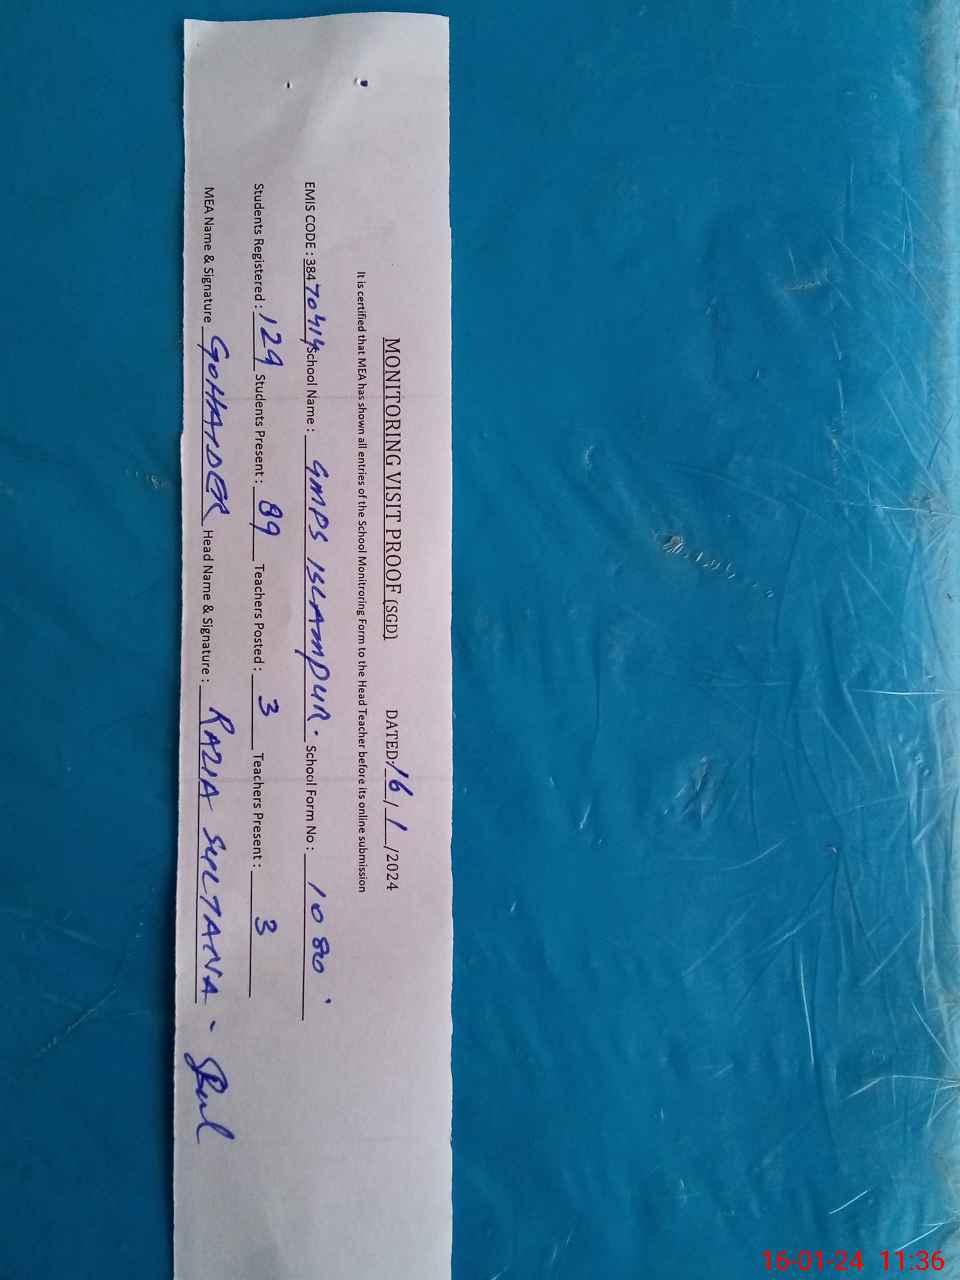 MONITORING VISIT PROOF (SGD) DATED: 16 / 1 /2024
It is certified that MEA has shown all entries of the School Monitroring Form to the Head Teacher before its online submission
EMIS CODE : 38470414 School Name : GMPS ISLAMPUR. School Form No : 1080
Students Registered : 129 Students Present : 89 Teachers Posted : 3 Teachers Present : 3
MEA Name & Signature Head Name & Signature : RAZIA SULTANA -
16-01-24 11:36